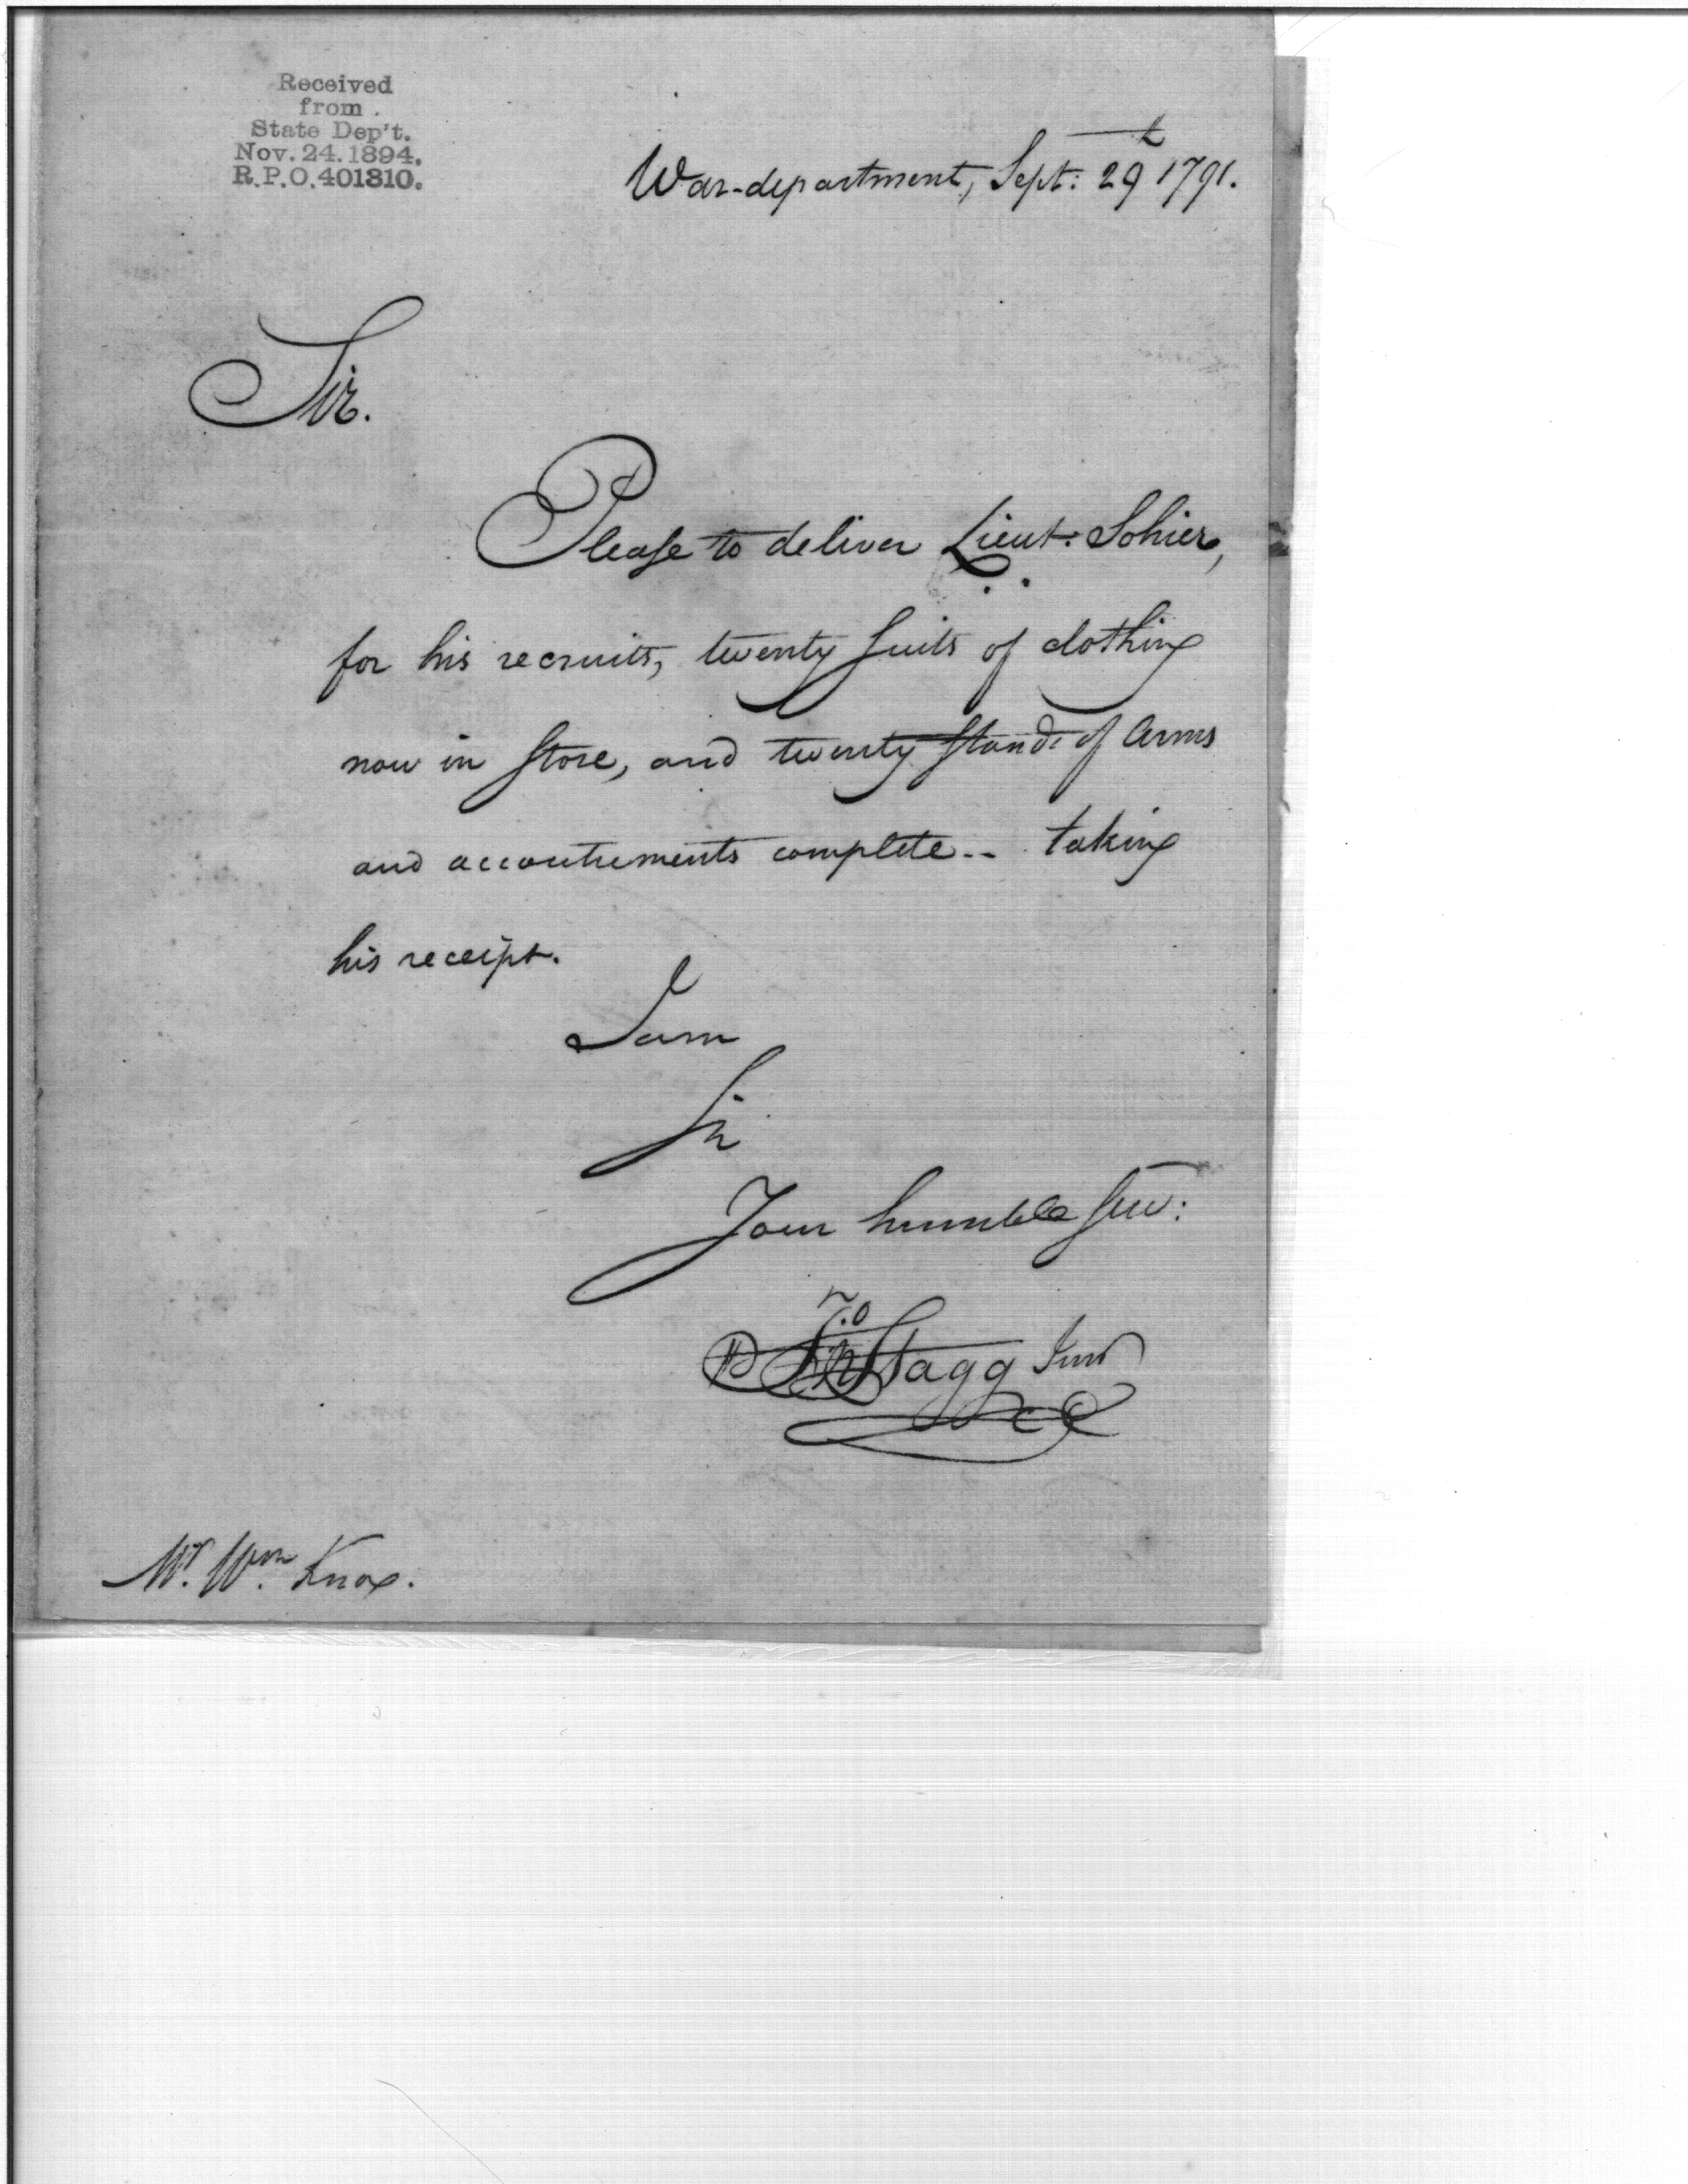 Received
from
State Dep't.
Nov. 24. 1894.
R.P.O. 401310.
War-department, Sept: 29th 1791.
Sir.
Please to deliver Lieut: Sohier,
for his recruits, twenty suits of clothing
now in store, and twenty stands of Arms
and accoutrements complete-- taking
his receipt.
I am
Sir
Your humble Serv:
Jno Stagg Junr
Mr. Wm. Knox.